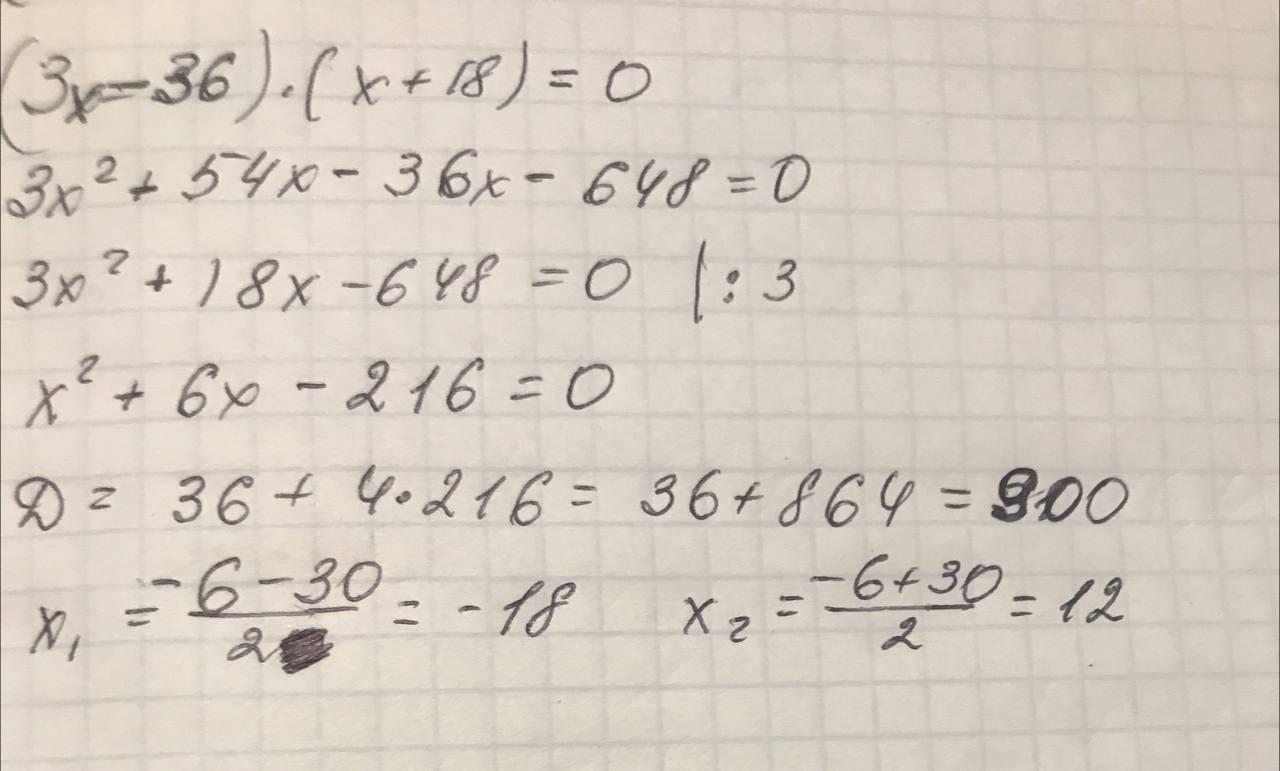 (3x-36)·(x+18)=0
3x²+54x-36x-648=0
3x²+18x-648=0 |:3
x²+6x-216=0
D=36+4·216=36+864=900
x₁=(-6-30)/2=-18 x₂=(-6+30)/2=12